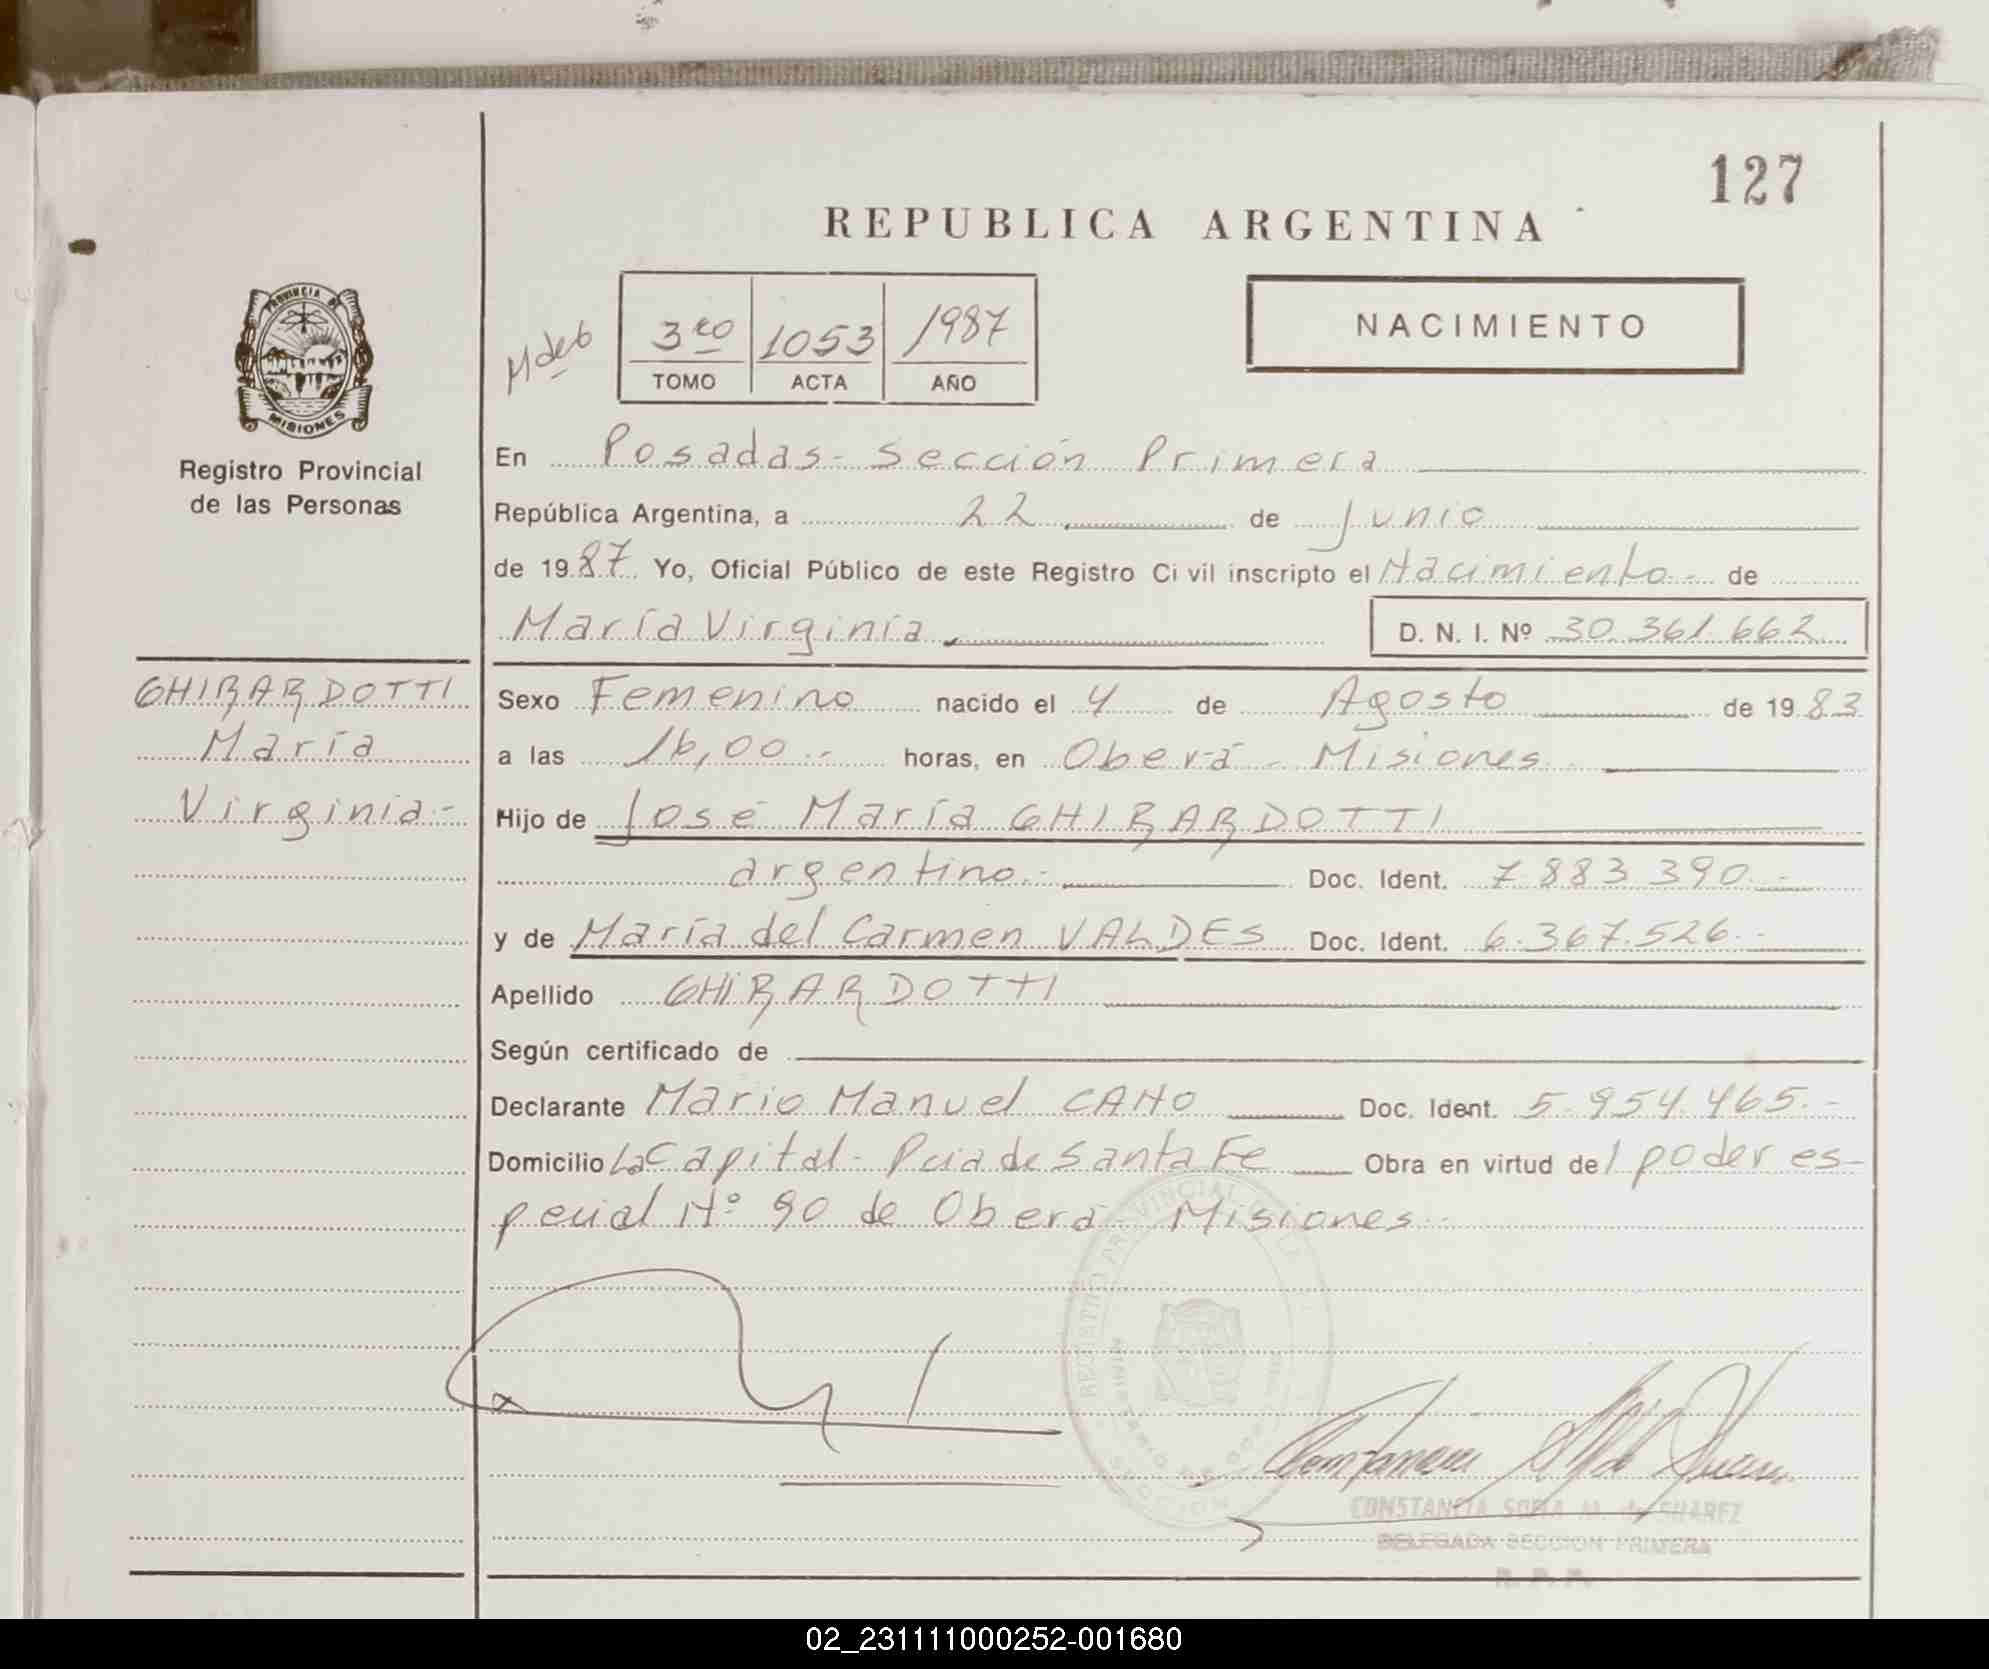 127
REPUBLICA ARGENTINA
PROVINCIA DE
MISIONES
Registro Provincial
de las Personas
3ro 1053 1987
TOMO ACTA AÑO
NACIMIENTO
En Posadas - Sección Primera
República Argentina, a 22 de Junio
de 1987. Yo, Oficial Público de este Registro Civil inscripto el Nacimiento - de
María Virginia D. N. I. Nº 30.361.662
GHIRARDOTTI
María
Virginia -
Sexo Femenino nacido el 4 de Agosto de 1983
a las 16,00 - horas, en Oberá - Misiones
Hijo de José María GHIRARDOTTI
argentino.- Doc. Ident. 7.883.390.-
y de María del Carmen VALDES Doc. Ident. 6.367.526.-
Apellido GHIRARDOTTI
Según certificado de
Declarante Mario Manuel CANO Doc. Ident. 5.954.465.-
Domicilio La Capital - Pcia de Santa Fe Obra en virtud del poder es-
pecial Nº 90 de Oberá - Misiones -
CONSTANCIA SOFIA M. de SUAREZ
DELEGADA SECCION PRIMERA
R. P. P.
02_231111000252-001680